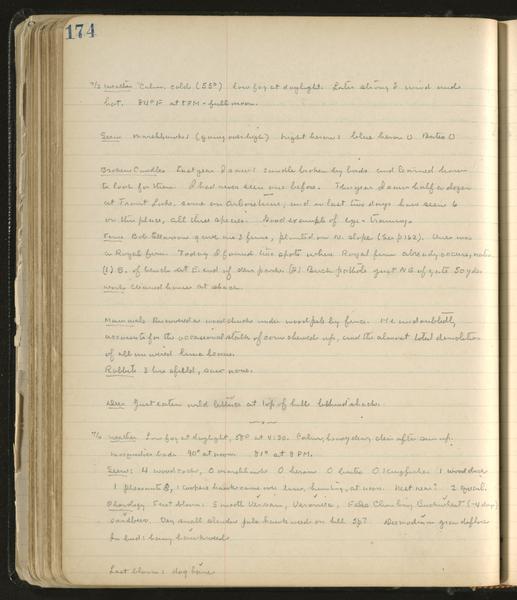 174
7/5 Weather Calm, cold (55°) low fog at daylight. Later strong S wind and
hot. 84°F at 8 PM - full moon.
Seen marshhawks (young overhigh) night heron: blue heron 0 Buteo 0
Broken Candles Last year I saw 1 candle broken by birds and learned how
to look for them. I had never seen one before. This year I saw half a dozen
at Trout Lake, some on Arboretum, and in last two days have seen 6
on this place, all three species. Good example of eye-training.
Ferns Bob Ellarson gave me 3 ferns, planted on N. slope (See p 162). One was
a Royal fern. Today I found two spots where Royal fern already occurs,
(1) E. of bench at E. end of deer park. (2) Birch pothole just N.E. of gate 50 yds.
Work Cleaned house at shack.
Mammals Discovered a woodchuck under woodpile by fence. He undoubtedly
accounts for the occasional stalk of corn chewed up, and the almost total demolition
of all unwired lima beans.
Rabbits I live afield, saw none.
Deer Just eaten wild lettuce at top of hill behind shack.
7/6 Weather Low fog at daylight, 58° at 4:30. Calm, heavy dew, clear after sun up.
mosquitoes bad. 90° at noon 81° at 8 PM.
Seen: 4 woodcocks, 0 marshhawks 0 heron 0 buteo 0 kingfisher 1 wood duck
1 pheasant, 1 coopers hawk came over house, hunting, at noon. Nest near? 2 quail.
Phenology First bloom: Smooth Vervain, Veronica, False Climbing Buckwheat (-4 days)
sandbur. Very small slender pale hawkweed on hill Sp? Desmodium green deflor
In bud: hairy hawkweed
Last bloom: dogbane